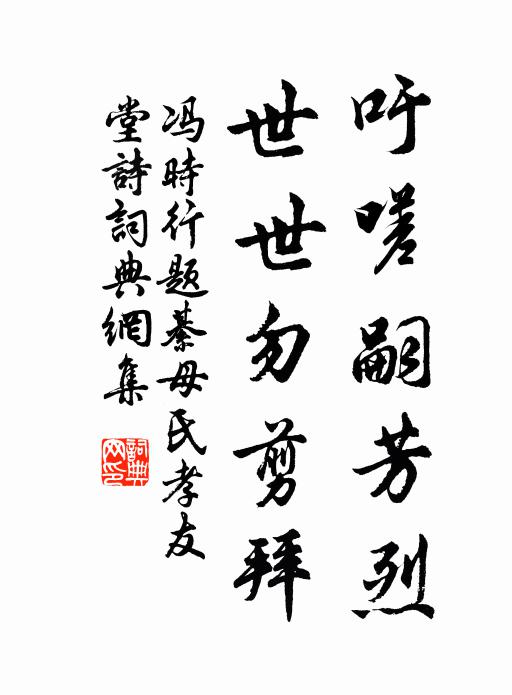 吁嗟嗣芳烈
世世勿剪拜
冯時行题綦毋氏孝友
堂詩詞典網集
詞典网印